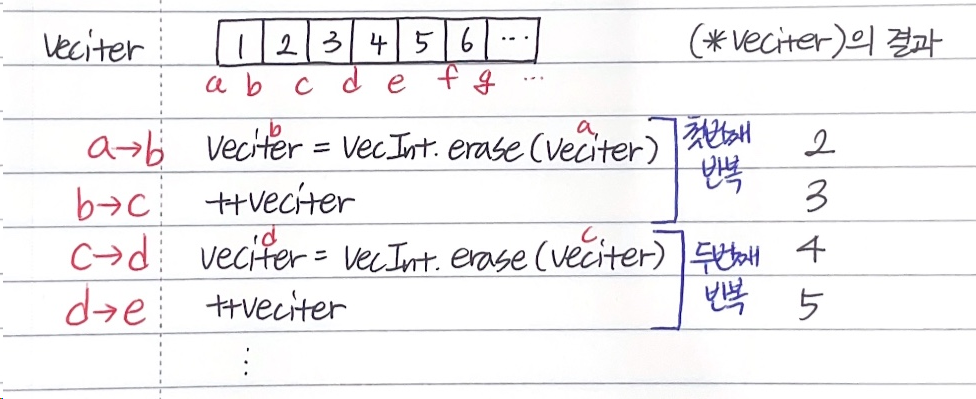 veciter 1 2 3 4 5 6 ... (*veciter)의 결과
a b c d e f g ...
a→b veciter = VecInt.erase(veciter) 2
b a
첫번째
반복
b→c ++veciter 3
c→d veciter = VecInt.erase(veciter) 4
d c
두번째
반복
d→e ++veciter 5
⋮